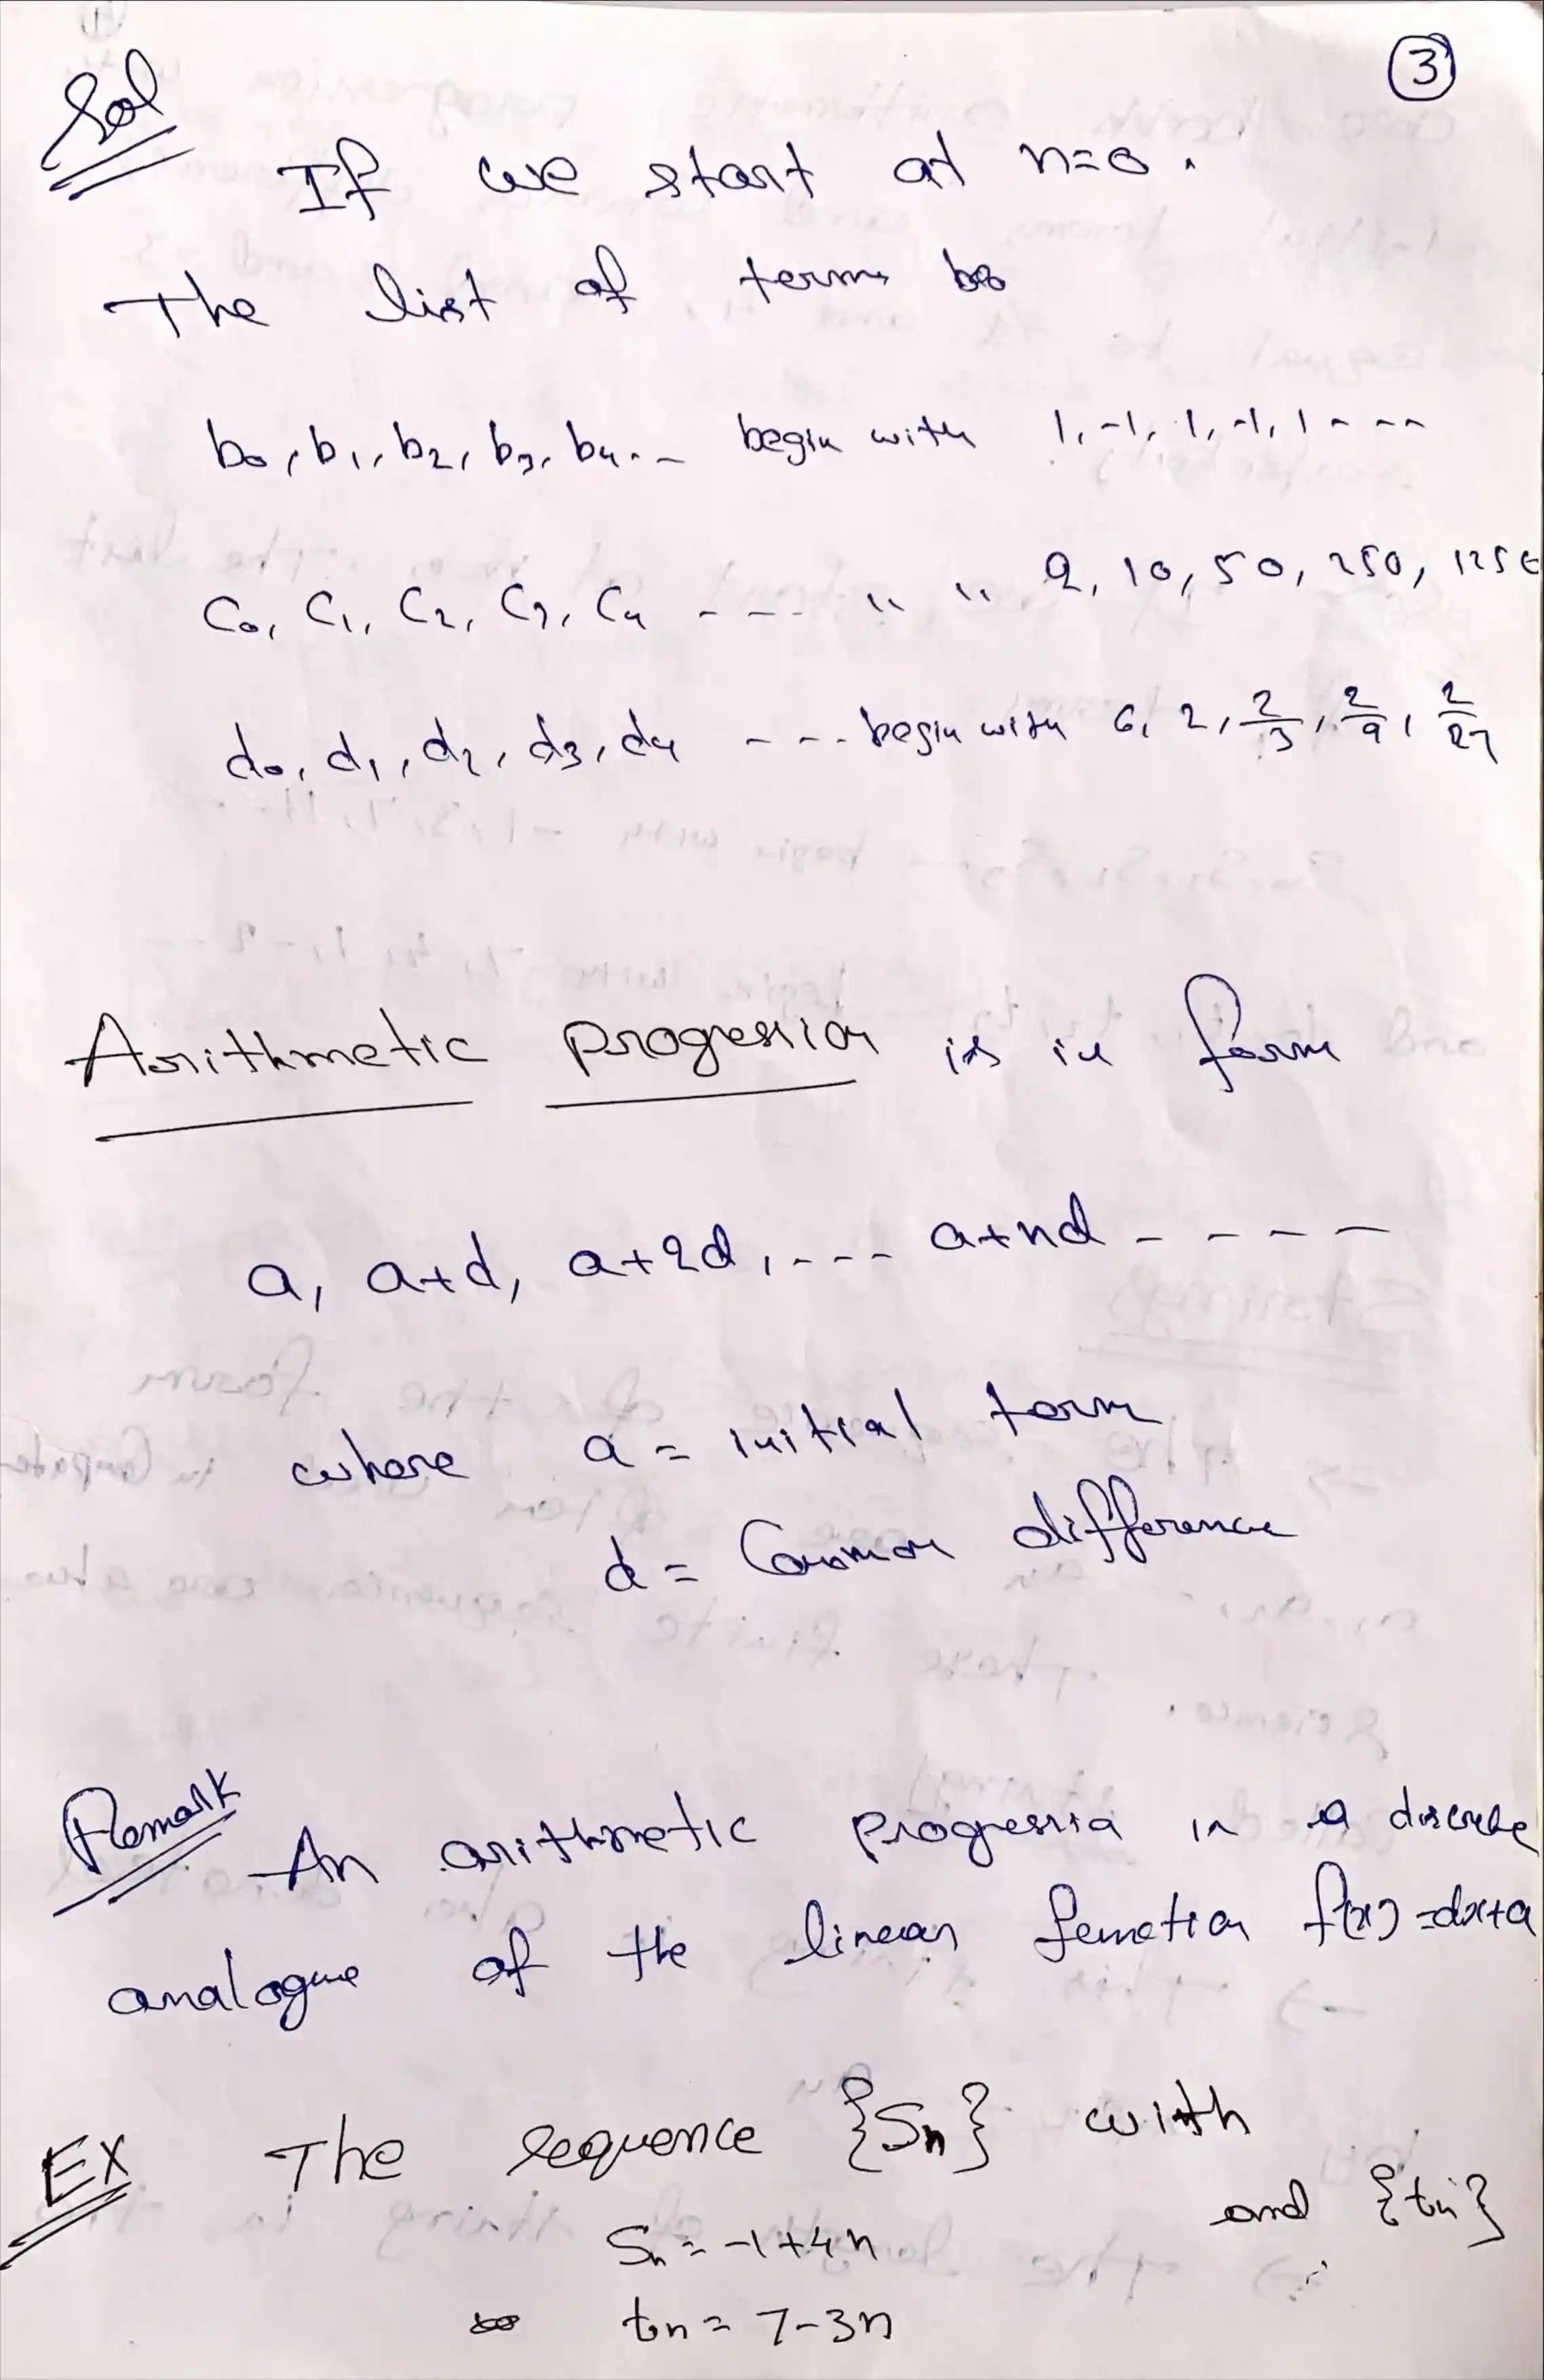 ③
Sol
If we start at n=0.
The list of terms
b₀, b₁, b₂, b₃, b₄.. begin with 1, -1, 1, -1, 1 ---
C₀, C₁, C₂, C₃, C₄ ---- " " 2, 10, 50, 250, 1250
d₀, d₁, d₂, d₃, d₄ --- begin with 6, 2, 2/3, 2/9, 2/27
Arithmetic progression is in form
a, a+d, a+2d, --- a+nd ----
where a = initial term
d = Common difference
Remark
An arithmetic progressia is a discrete
analogue of the linear function f(x) = dx+a
EX The sequence {Sn} with
and {tn}
Sn = -1+4n
tn = 7-3n